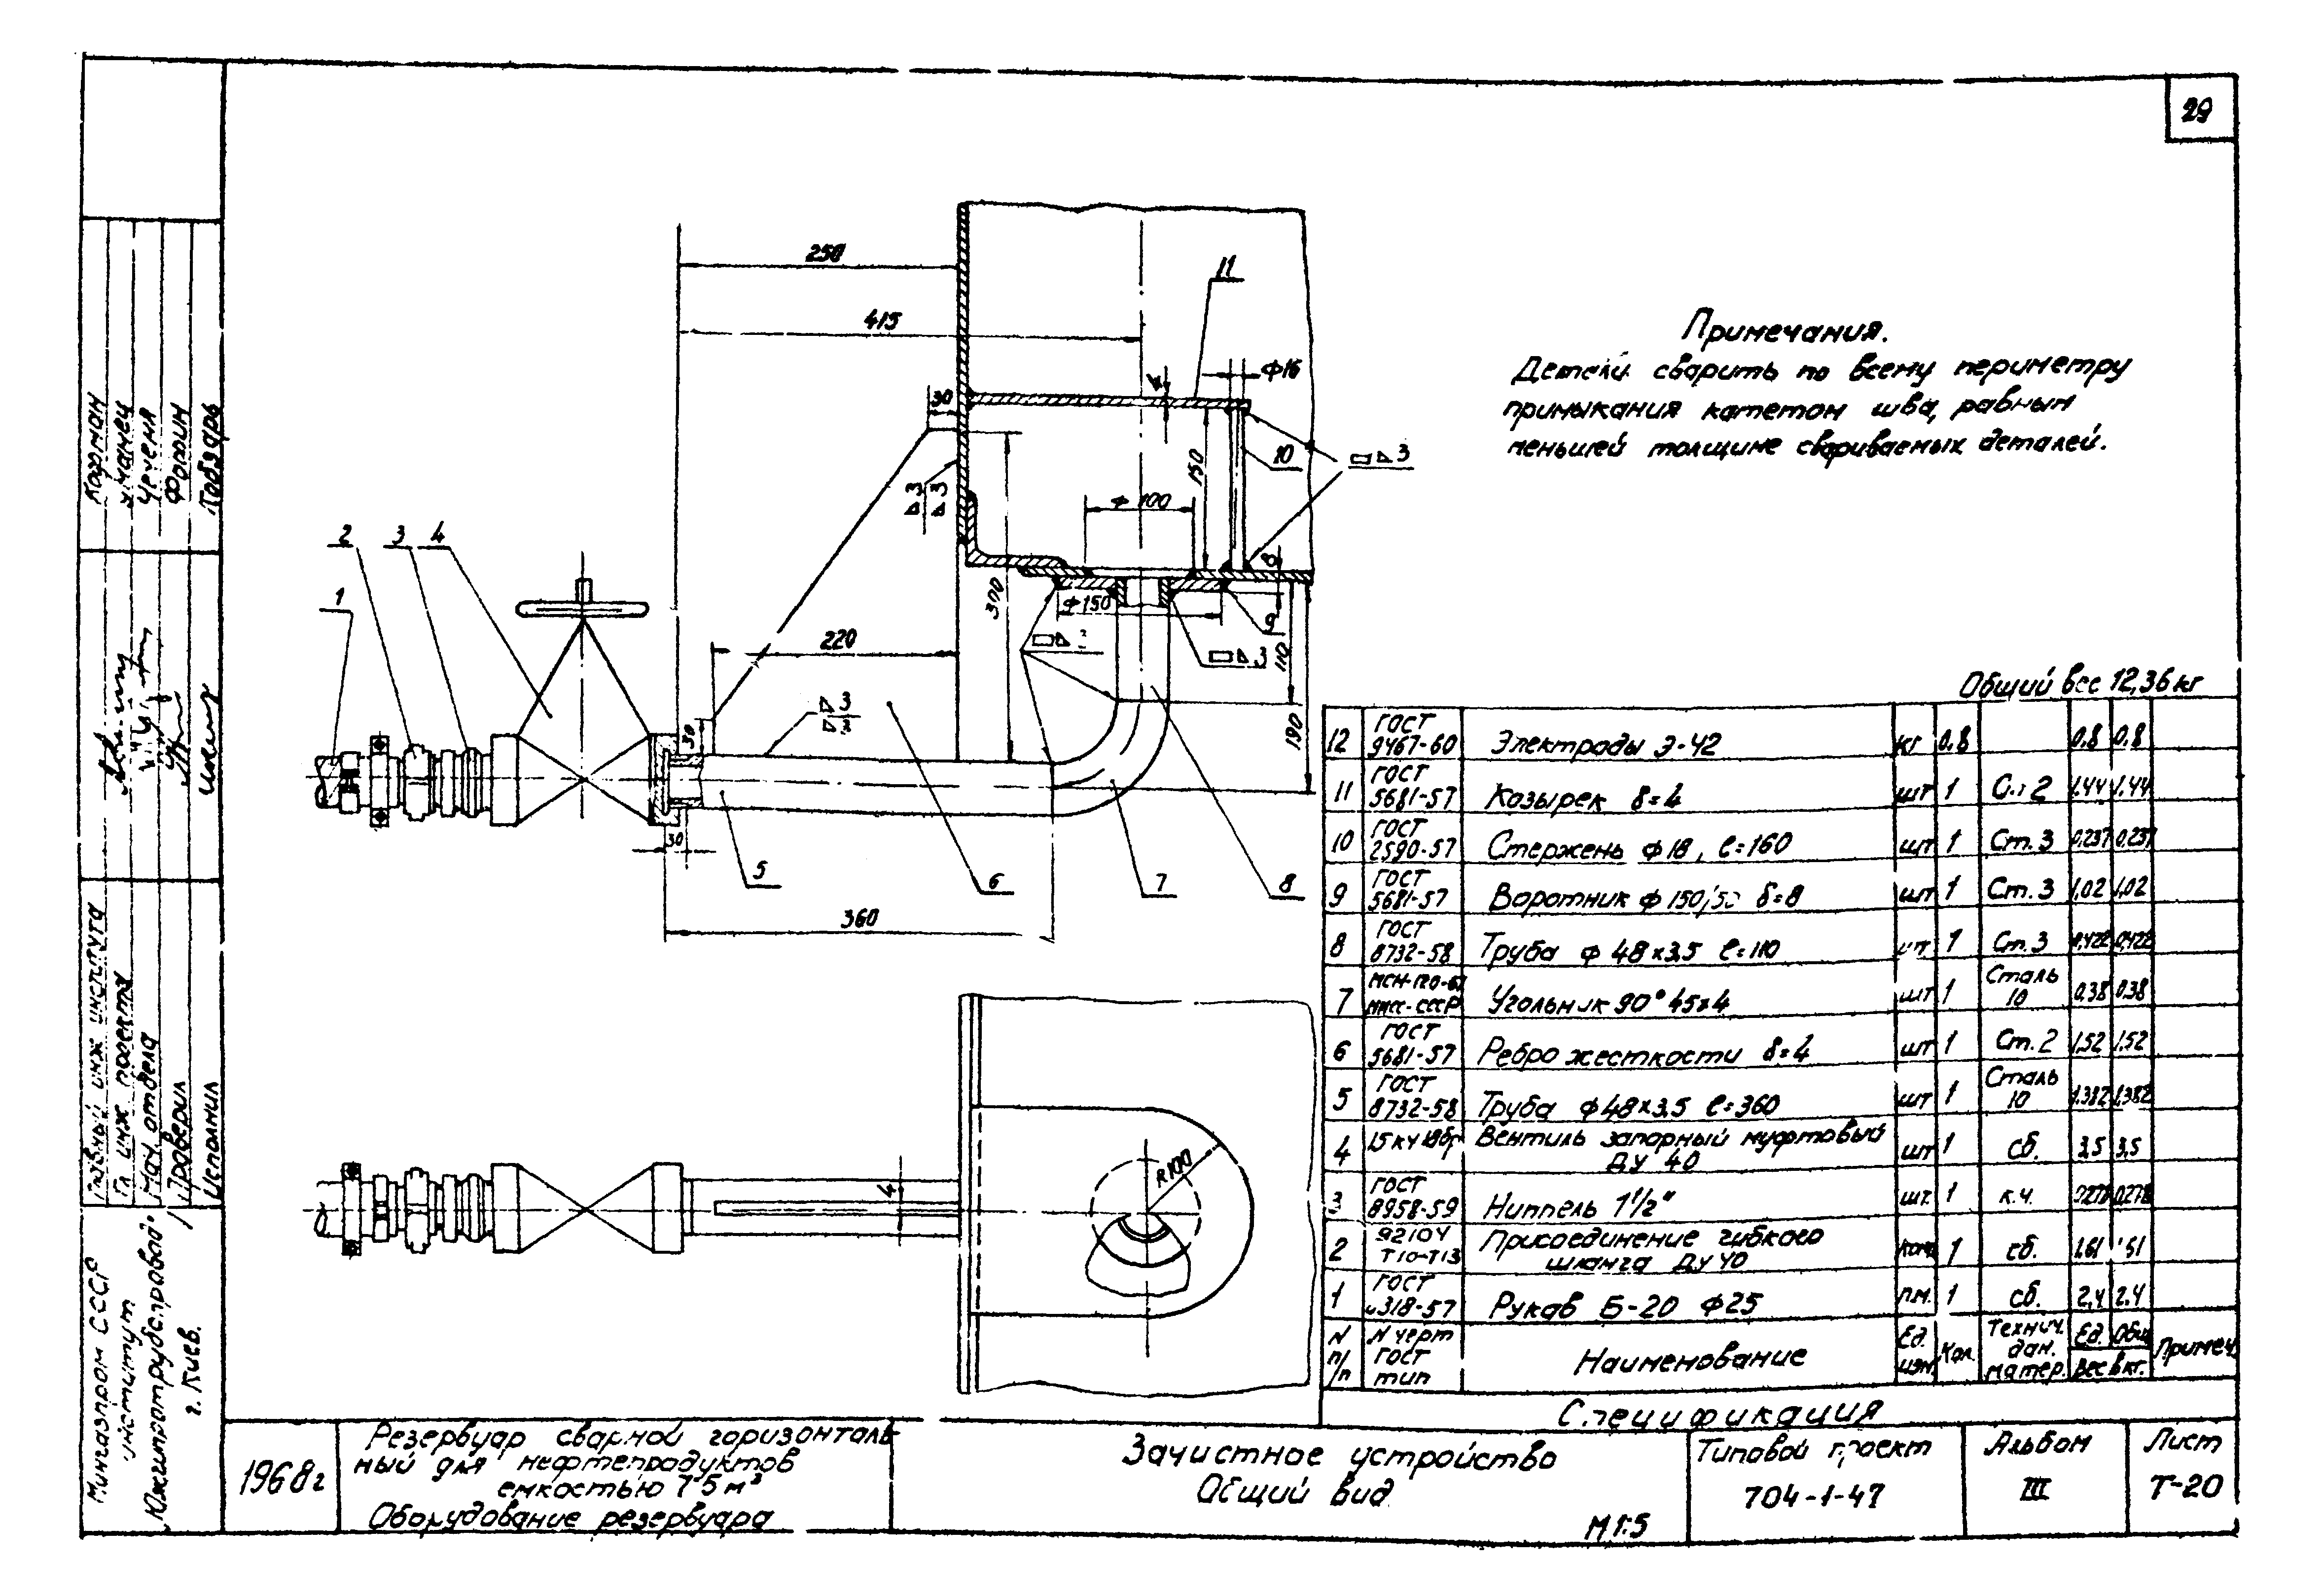 29
250
415
11
ф16
4
30
10
3
150
ф 100
3
3
2
3
4
1
8
300
ф150
9
220
3
110
3
190
30
30
5
6
7
8
360
4
R100
Примечания.
Детали сварить по всему периметру
примыкания катетом шва, равным
меньшей толщине свариваемых деталей.
Общий вес 12,36 кг
12 ГОСТ 9467-60 Электроды Э-42 кг 0.8 0,8 0,8
11 ГОСТ 5681-57 Козырек δ=4 шт 1 Ст 2 1,44 1,44
10 ГОСТ 2590-57 Стержень ф18, ℓ=160 шт 1 Ст.3 0,237 0,237
9 ГОСТ 5681-57 Воротник ф 150/50 δ=8 шт 1 Ст.3 1,02 1,02
8 ГОСТ 8732-58 Труба ф 48×3,5 ℓ=110 шт 1 Ст.3 0,422 0,422
7 Угольник 90° 45×4 шт 1 Сталь 10 0,38 0,38
6 ГОСТ 5681-57 Ребро жесткости δ=4 шт 1 Ст.2 1,52 1,52
5 ГОСТ 8732-58 Труба ф48×3.5 ℓ=360 шт 1 Сталь 10 1,382 1,382
4 15кч18бр Вентиль запорный муфтовый
ДУ 40 шт 1 сб. 3,5 3,5
3 ГОСТ 8958-59 Ниппель 1½" шт. 1 к.ч. 0,278 0,278
2 92104 Т10-Т13 Присоединение гибкого
шланга ДУ40 комп 1 сб. 1,61 1,61
1 ГОСТ Рукав Б-20 ф25 п.м. 1 сб. 2,4 2.4
N п/п N черт ГОСТ тип Наименование Ед. изм. Кол. Технич. дан. матер. Ед. Общ. Вес в кг. Примеч.
Спецификация
1968г
Резервуар сварной горизонталь
ный для нефтепродуктов
емкостью 75 м³
Оборудование резервуара
Зачистное устройство
Общий вид
М 1:5
Типовой проект
704-1-47
Альбом
III
Лист
Т-20
Мингазпром СССР
институт
Южгипротрубопровод
г. Киев.
Главный инж института
Гл инж. проекта
Нач. отдела
Проверил
Исполнил
Форин